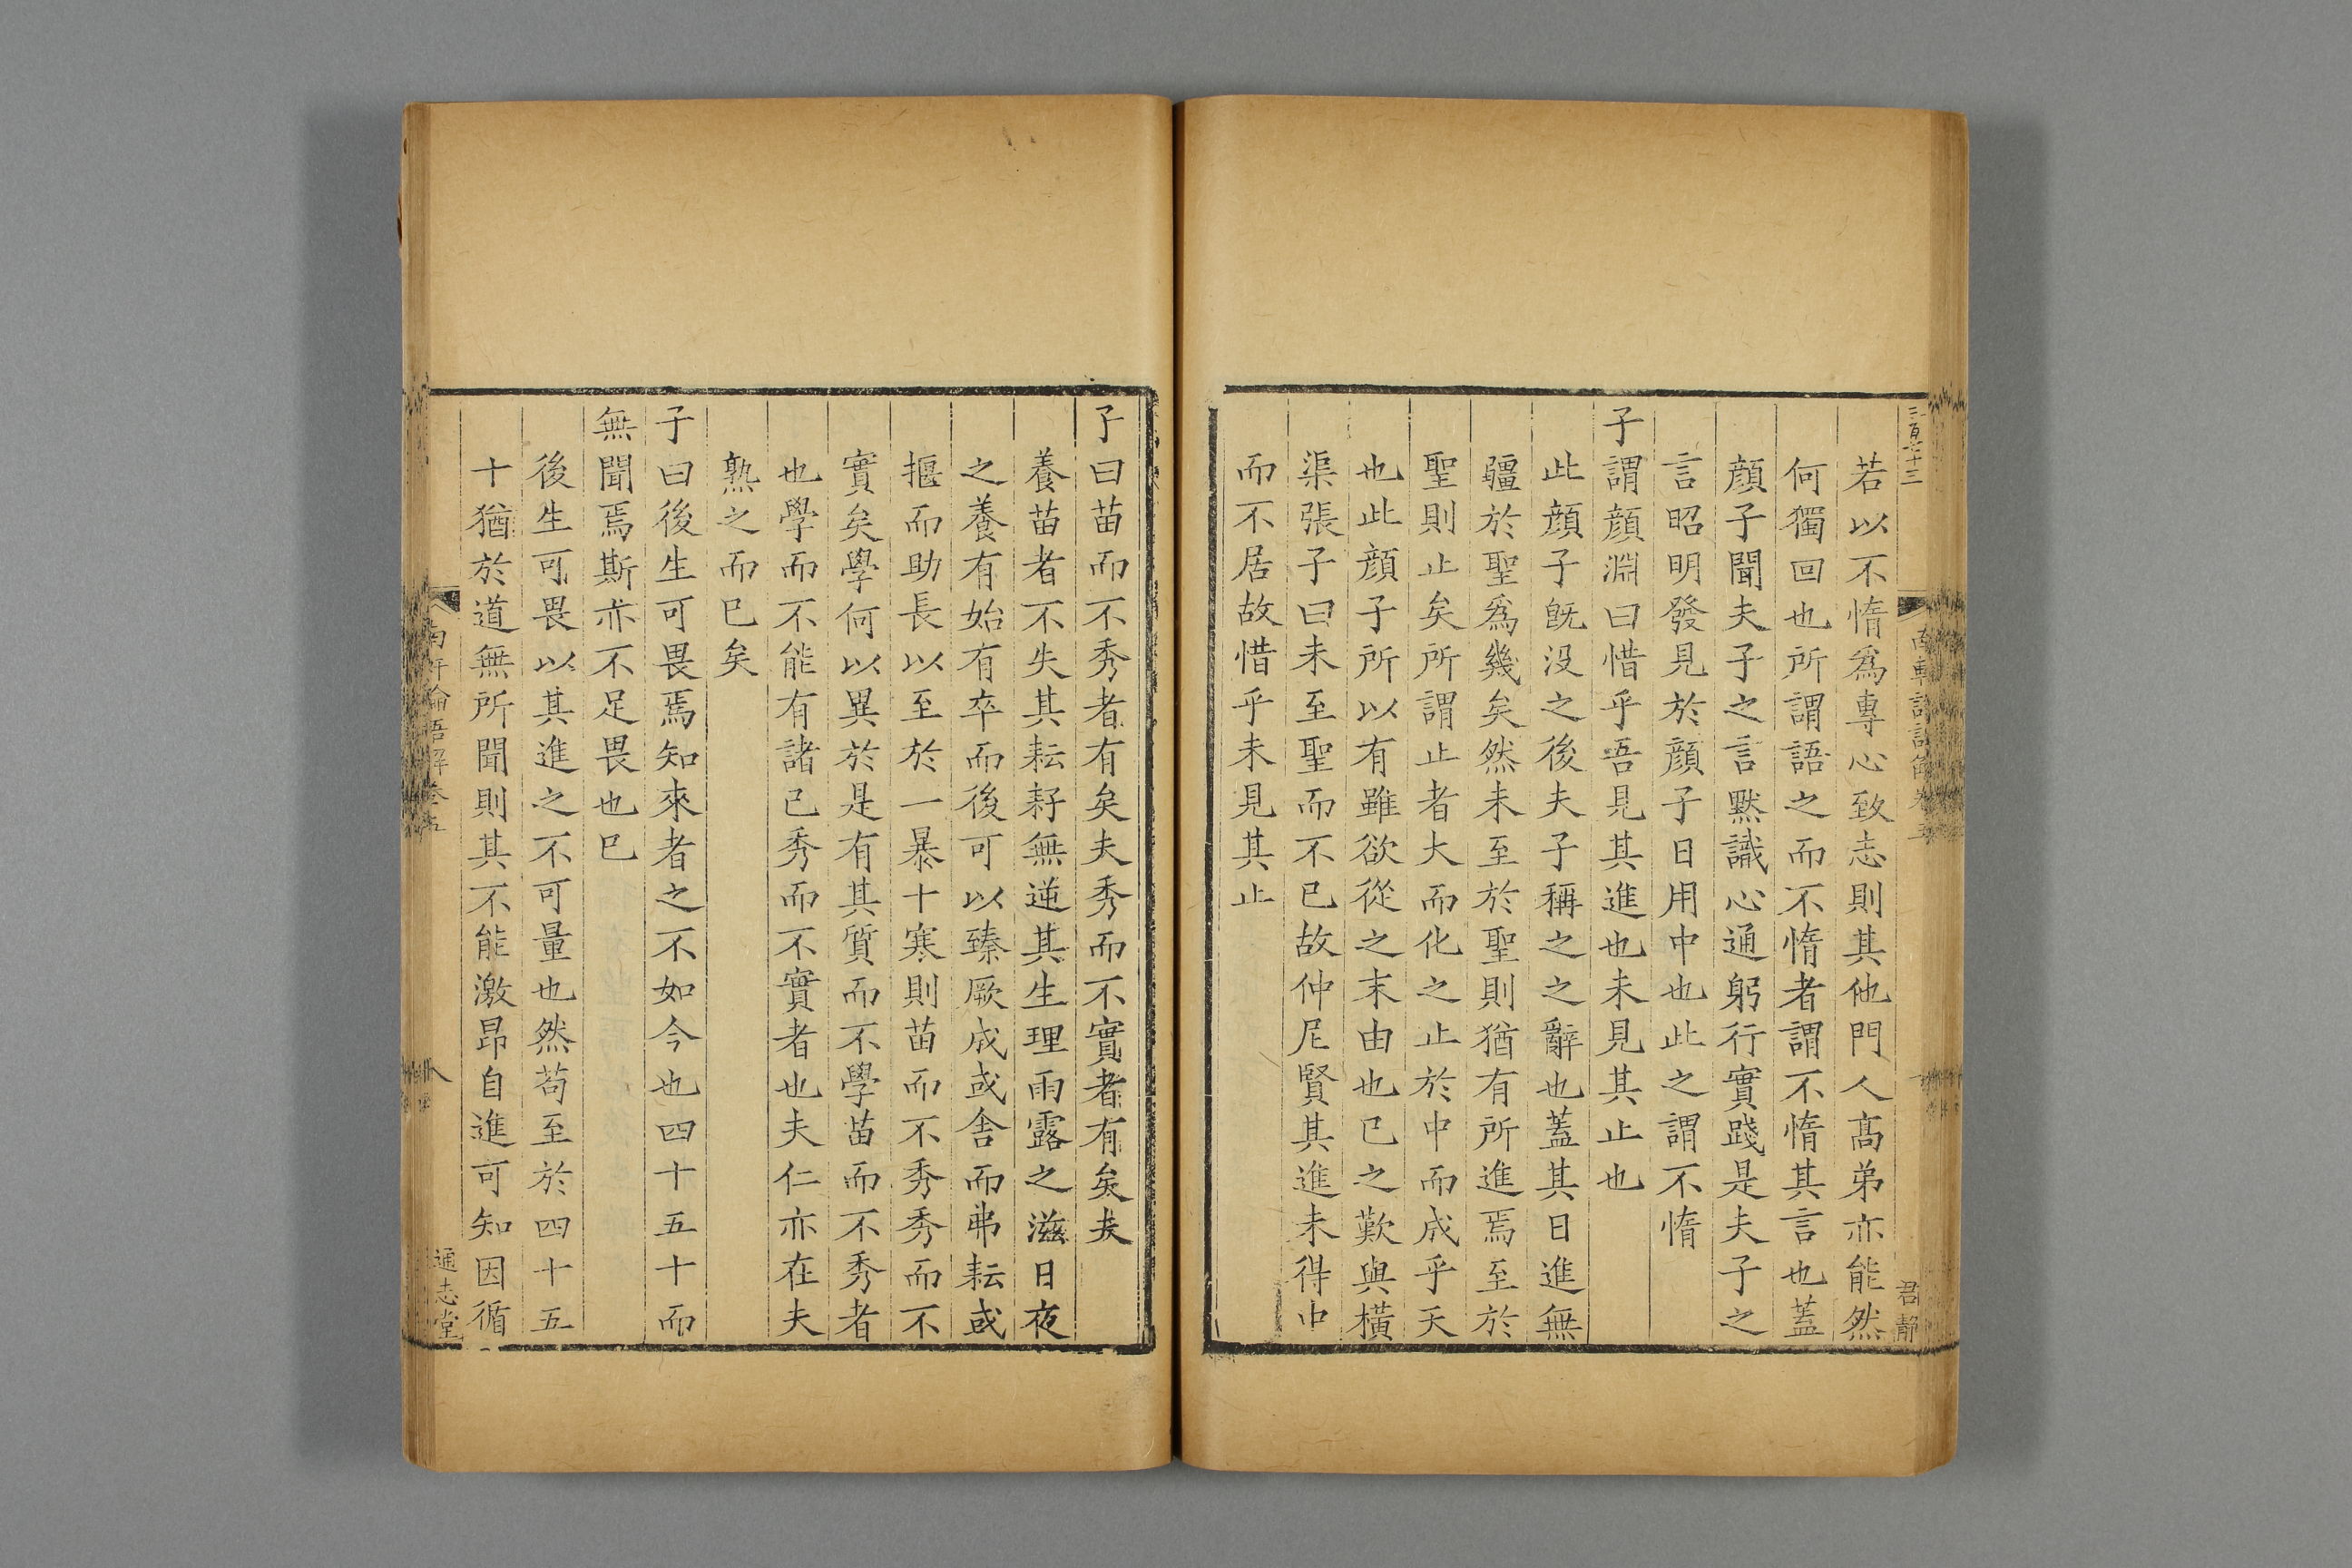 若以不惰爲專心致志則其他門人高弟亦能然
何獨回也所謂語之而不惰者謂不惰其言也蓋
顔子聞夫子之言默識心通躬行實踐是夫子之
言昭明發見於顔子日用中也此之謂不惰
子謂顔淵曰惜乎吾見其進也未見其止也
此顔子旣没之後夫子稱之之辭也蓋其日進無
疆於聖爲幾矣然未至於聖則猶有所進焉至於
聖則止矣所謂止者大而化之止於中而成乎天
也此顔子所以有雖欲從之末由也已之歎與橫
渠張子曰未至聖而不已故仲尼賢其進未得中
而不居故惜乎未見其止
君靜
子曰苗而不秀者有矣夫秀而不實者有矣夫
養苗者不失其耘耔無逆其生理雨露之滋日夜
之養有始有卒而後可以臻厥成或舍而弗耘或
揠而助長以至於一暴十寒則苗而不秀秀而不
實矣學何以異於是有其質而不學苗而不秀者
也學而不能有諸己秀而不實者也夫仁亦在夫
熟之而已矣
子曰後生可畏焉知來者之不如今也四十五十而
無聞焉斯亦不足畏也已
後生可畏以其進之不可量也然苟至於四十五
十猶於道無所聞則其不能激昂自進可知因循
論語解卷五
八
通志堂